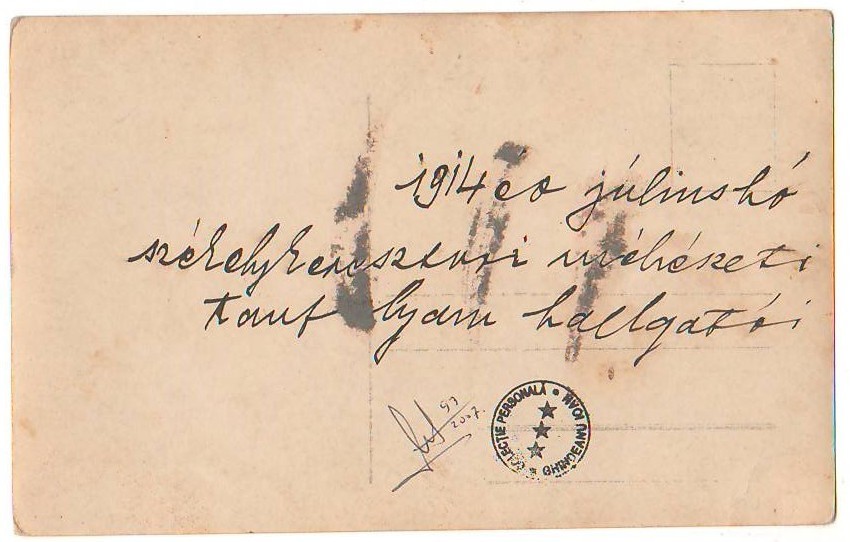 1914 es júliushó
székelykeresztúri méhészeti
tanf lyam hallgatói
97
2007.
COLECTIE PERSONALĂ * GHINDEVANU IOAN *